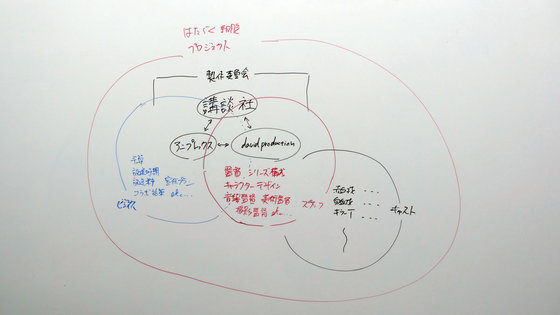 はたらく細胞
プロジェクト
製作委員会
講談社
アニプレックス
david production
予算
放送時期
放送枠 宣伝プラン
コラボ企業 etc...
ビジネス
監督 シリーズ構成
キャラクターデザイン
音響監督 美術監督
撮影監督 etc...
スタッフ
赤血球 ...
白血球 ...
キラーT ...
キャスト